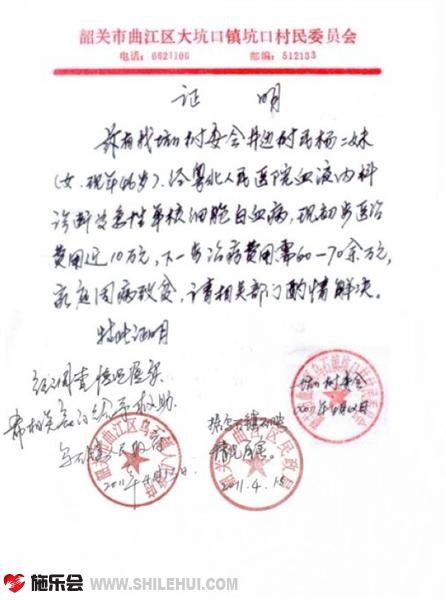 韶关市曲江区大坑口镇坑口村民委员会
电话：6621106 邮编：512133
证 明
兹有我坑口村委会井边村民杨二妹
（女、现年46岁），经粤北人民医院血液内科
诊断为急性单核细胞白血病，现初步医治
费用近10万元，下一步治病费用需60—70余万元，
家庭因病致贫，请有相关部门酌情解决。
特此证明
坑口村委会
经调查情况属实
希相关部门给予救助
乌石镇人民政府
2011年4月12日
情况属实
2011.4.15
韶关市曲江区民政局
施乐会 www.SHILEHUI.com